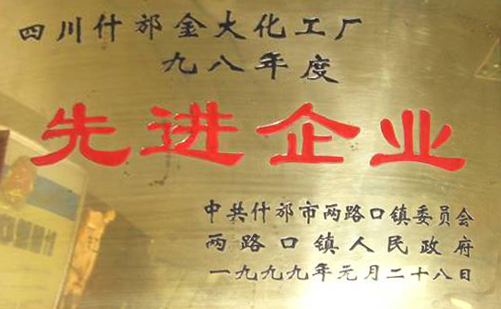 四川什邡金大化工厂
九八年度
先进企业
中共什邡市两路口镇委员会
两路口镇人民政府
一九九九年元月二十八日